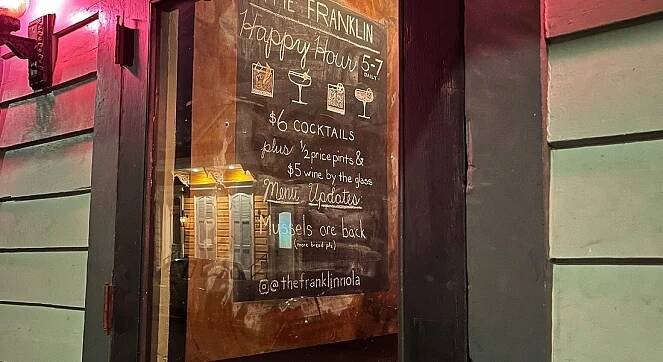 THE FRANKLIN
Happy Hour 5-7
DAILY
$6 COCKTAILS
plus 1/2 price pints &
$5 wine by the glass
Menu Updates
Mussels are back
(more bread plz)
@thefranklinnola